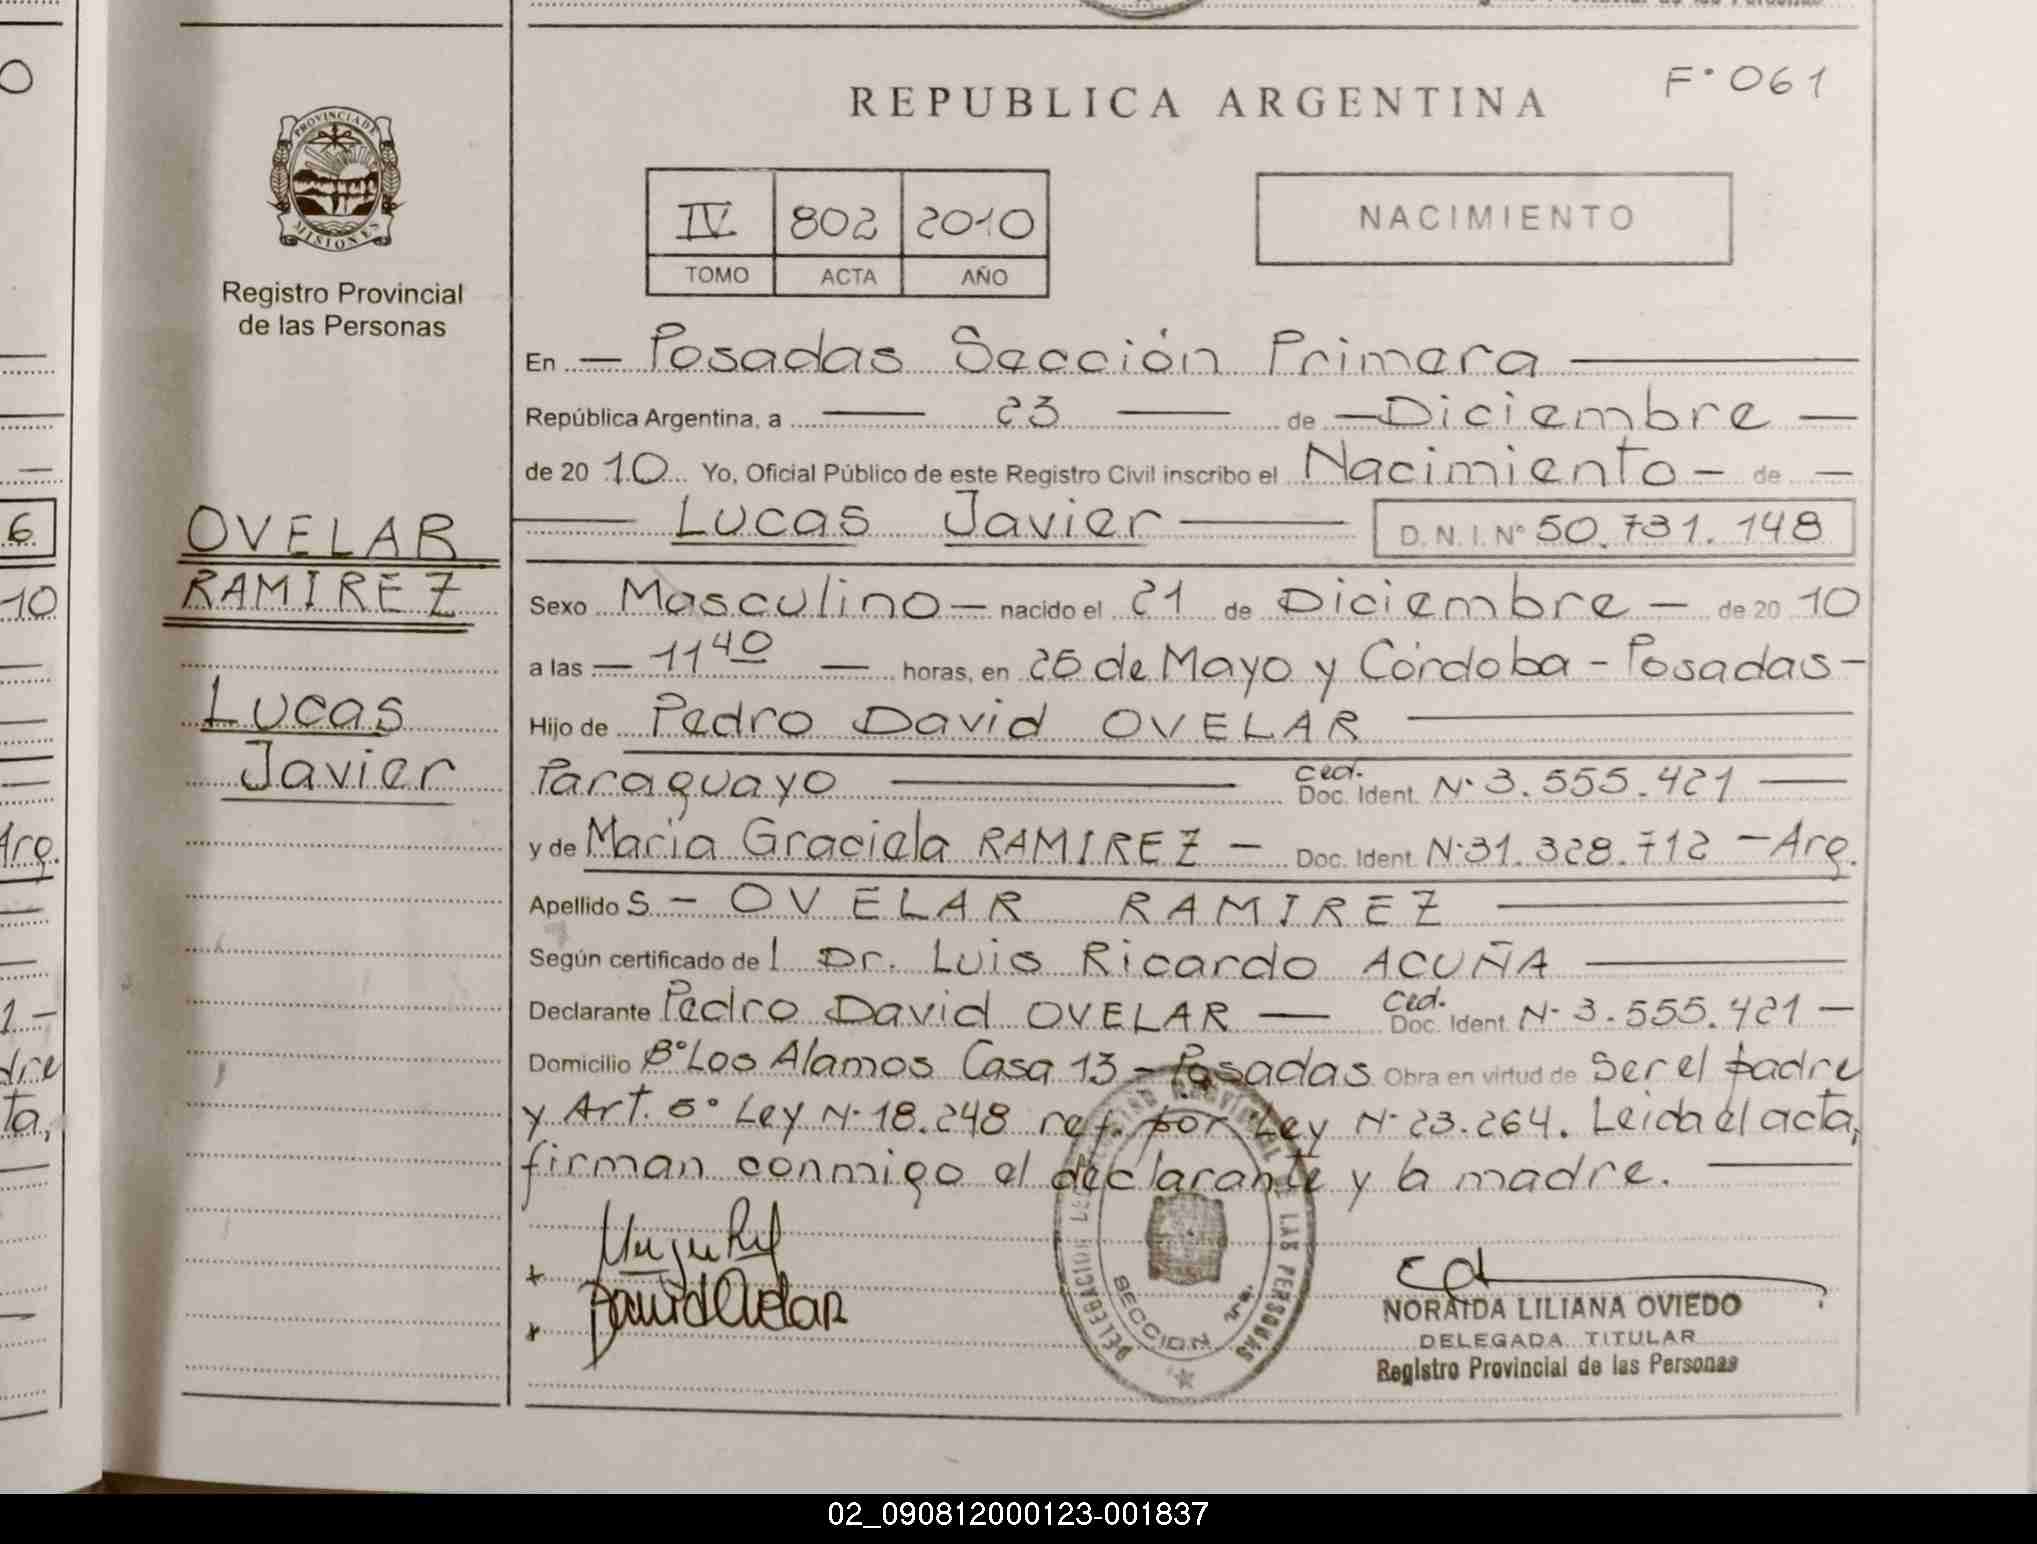 REPUBLICA ARGENTINA
F° 061
PROVINCIA DE
MISIONES
Registro Provincial
de las Personas
IV 802 2010
TOMO ACTA AÑO
NACIMIENTO
En Posadas Sección Primera
República Argentina, a 23 de Diciembre
de 20 10 Yo, Oficial Público de este Registro Civil inscribo el Nacimiento de
Lucas Javier D.N.I. N° 50.731.148
OVELAR
RAMIREZ
Lucas
Javier
Sexo Masculino nacido el 21 de Diciembre de 20 10
a las 11 40 horas, en 25 de Mayo y Córdoba - Posadas -
Hijo de Pedro David OVELAR
Paraguayo Ced. Doc. Ident. N° 3.555.421
y de Maria Graciela RAMIREZ Doc. Ident. N° 31.328.712 - Arg.
Apellido s - OVELAR RAMIREZ
Según certificado de l Dr. Luis Ricardo ACUÑA
Declarante Pedro David OVELAR Ced. Doc. Ident. N° 3.555.421
Domicilio B° Los Alamos Casa 13 - Posadas Obra en virtud de Ser el padre
y Art. 5° Ley N° 18.248 ref. por Ley N° 23.264. Leida el acta,
firman conmigo el declarante y la madre.
David Ovelar
DELEGACION
LAS PERSONAS
SECCION 1ra.
NORAIDA LILIANA OVIEDO
DELEGADA TITULAR
Registro Provincial de las Personas
02_090812000123-001837